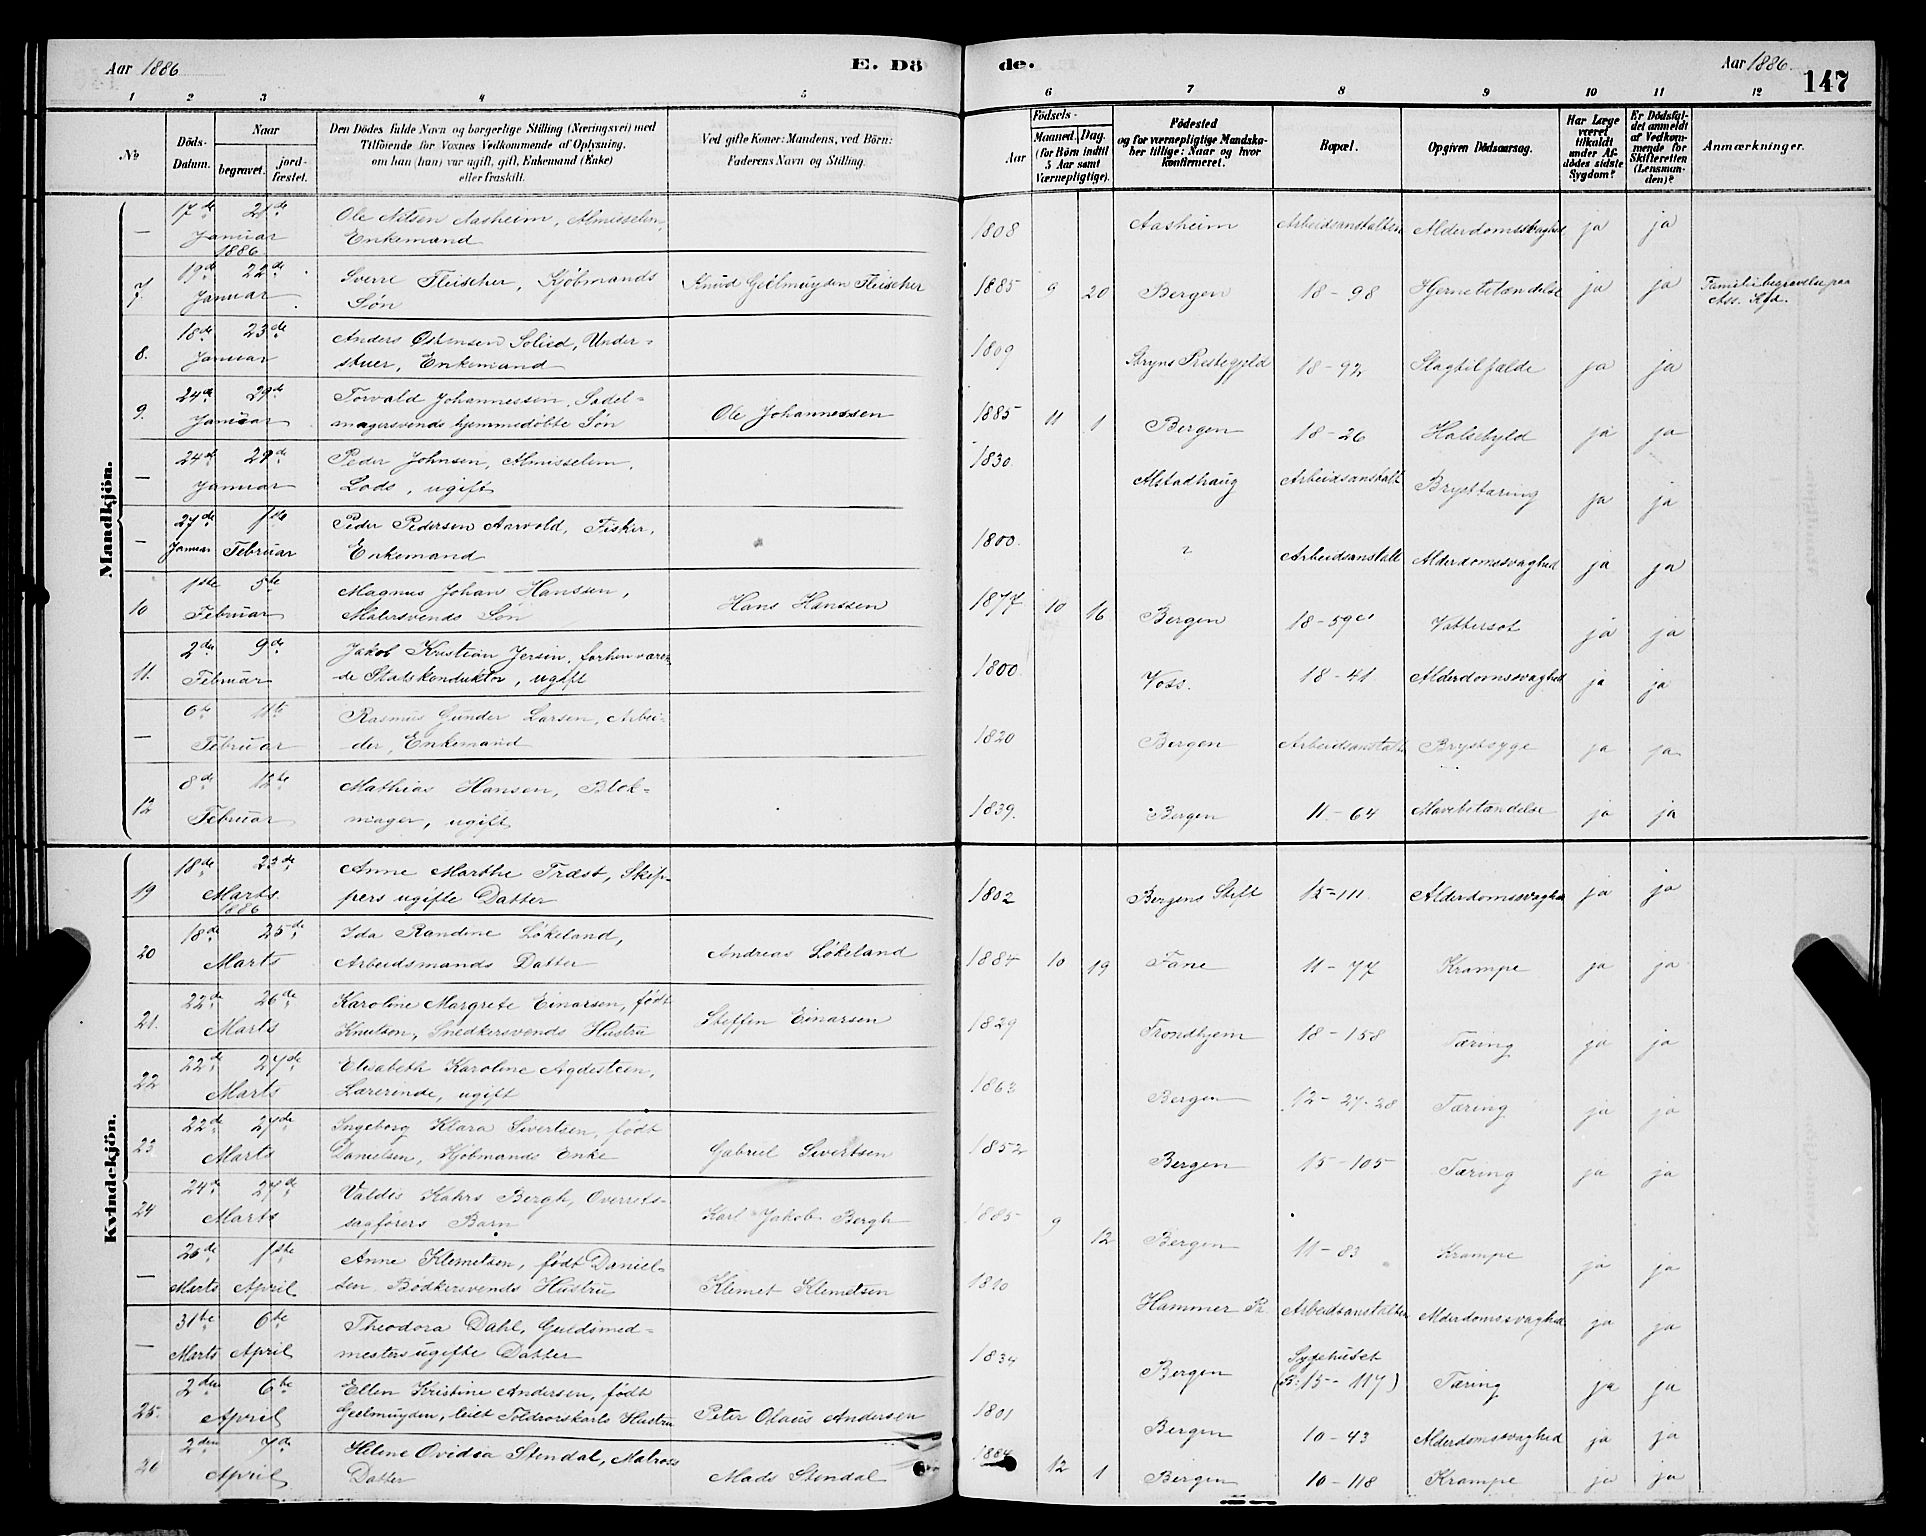 Aar 1886
E. Dö
de.
Aar 1886
147
1 2 3 4 5 6 7 8 9 10 11 12
No
Döds-Datum.
Naar
begravet.
jord-fæstet.
Den Dödes fulde Navn og borgerlige Stilling (Næringsvei) med
Tilföiende for Voxnes Vedkommende af Oplysning,
om han (hun) var ugift, gift, Enkemand (Enke)
eller fraskilt.
Ved gifte Koner: Mandens, ved Börn:
Faderens Navn og Stilling.
Födsels-
Aar
Maaned.
Dag.
(for Börn indtil
5 Aar samt
Værnepligtige).
Födested
og for værnepligtige Mandska-
ber tillige: Naar og hvor
konfirmeret.
Bopæl.
Opgiven Dödsaarsag.
Har Læge
været
tilkaldt
under Af-
dödes sidste
Sygdom?
Er Dödsfal-
det anmeldt
af Vedkom-
mende for
Skifteretten
(Lensman-
den)?
Anmærkninger.
Mandkjön.
— 17de Januar 1886 21de Ole Nilsen Aasheim, Almisselem, Enkemand 1808 Aasheim Arbeidsanstalten Alderdomssvaghed ja ja
7. 19de Januar 22de Sverre Fleischer, Kjöbmands Sön Knud Geelmuyden Fleischer 1885 9 20 Bergen 18-98 Hjernebetændelse ja ja Familiebegravelse paa Ass. Kgd.
8. 18de Januar 23de Anders Östensen Solied, Enkemand 1809 Stryns Prestegjeld 18-92 Slagtilfælde ja ja
9. 24de Januar 29de Torvald Johannessen, Sadel-magersvends hjemmedöbte Sön Ole Johannessen 1885 11 1 Bergen 18-26 Halsebyld ja ja
— 24de Januar 28de Peder Johnsen, Almisselem, Lods, ugift 1830 Alstadhaug Arbeidsanstalt Brysttæring ja ja
— 27de Januar 1ste Februar Peder Pedersen Aarvold, Fisker, Enkemand 1800. ? Arbeidsanstalt Alderdomssvaghed ja ja
10 1ste Februar 5te Magnus Johan Hanssen, Malersvends Sön Hans Hanssen 1877 10 16 Bergen 18-59 Vattersot ja ja
11. 2den Februar 9de Jakob Kristian Jersin, forhenværen-de Statskonduktör, ugift 1800 Voss. 18-41 Alderdomssvaghed ja ja
— 6te Februar 11te Rasmus Gunder Larsen, Arbei-der, Enkemand 1820 Bergen Arbeidsanstalt Brystsyge ja ja
12 8de Februar 12te Mathias Hansen, Blok-mager, ugift 1839. Bergen 11-64 Mavebetændelse ja ja
Kvindekjön.
19 18de Marts 1886 23de Anne Marthe Træst, Skip-pers ugifte Datter 1802 Bergens Stift 15-111. Alderdomssvaghed ja ja
20 18de Marts 25de Ida Randine Lökeland, Arbeidsmands Datter Andreas Lökeland 1884 10 19 Fane 11-77 Krampe ja ja
21. 22de Marts 26de Karoline Margrete Einarsen, födt Knutson, Snedkersvends Hustru Steffen Einarsen 1829 Trondhjem 18-158 Tæring ja ja
22 22de Marts 27de Elisabeth Karoline Agdesteen, Lærerinde, ugift 1863 Bergen 12-27-28 Tæring ja ja
23 22de Marts 27de Ingeborg Klara Sivertsen, födt Danielsen, Kjöbmands Enke Gabriel Sivertsen 1852 Bergen 15-105 Tæring ja ja
24 24de Marts 27de Valdis Kahrs Bergh, Overrets-sagförers Barn Karl Jakob Bergh 1885 9 12 Bergen 11-83 Krampe ja ja
— 26de Marts 1ste April Anne Klemetsen, födt Daniel-sen, Bödkersvends Hustru Klemet Klemetsen 1810 Hammer Pr. Arbeidsanstalten Alderdomssvaghed ja ja
— 31te Marts 6te April Theodora Dahl, Guldsmed-mesters ugifte Datter 1834 Bergen Sygehuset (R. 15-117) Tæring ja ja
25. 2den April 6te Ellen Kristine Andersen, födt Geelmuyden, Toldrorskarls Hustru Peter Olaus Andersen 1801 Bergen 10-43 Alderdomssvaghed ja ja
26 2den April 7de Helene Ovidia Stendal, Matros Datter Mads Stendal 1884 12 1 Bergen 10-118 Krampe ja ja